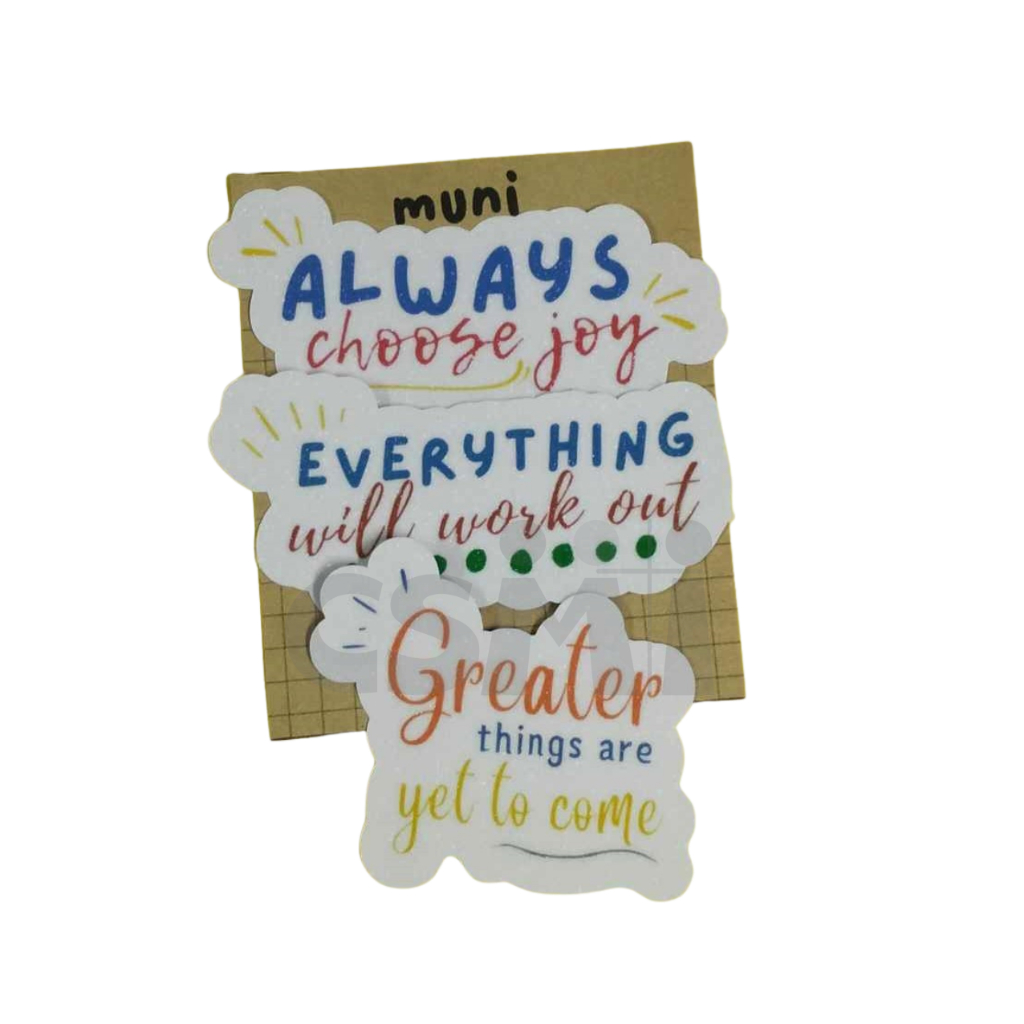 muni
ALWAYS
choose joy
EVERYTHING
will work out
GSMI
Greater
things are
yet to come